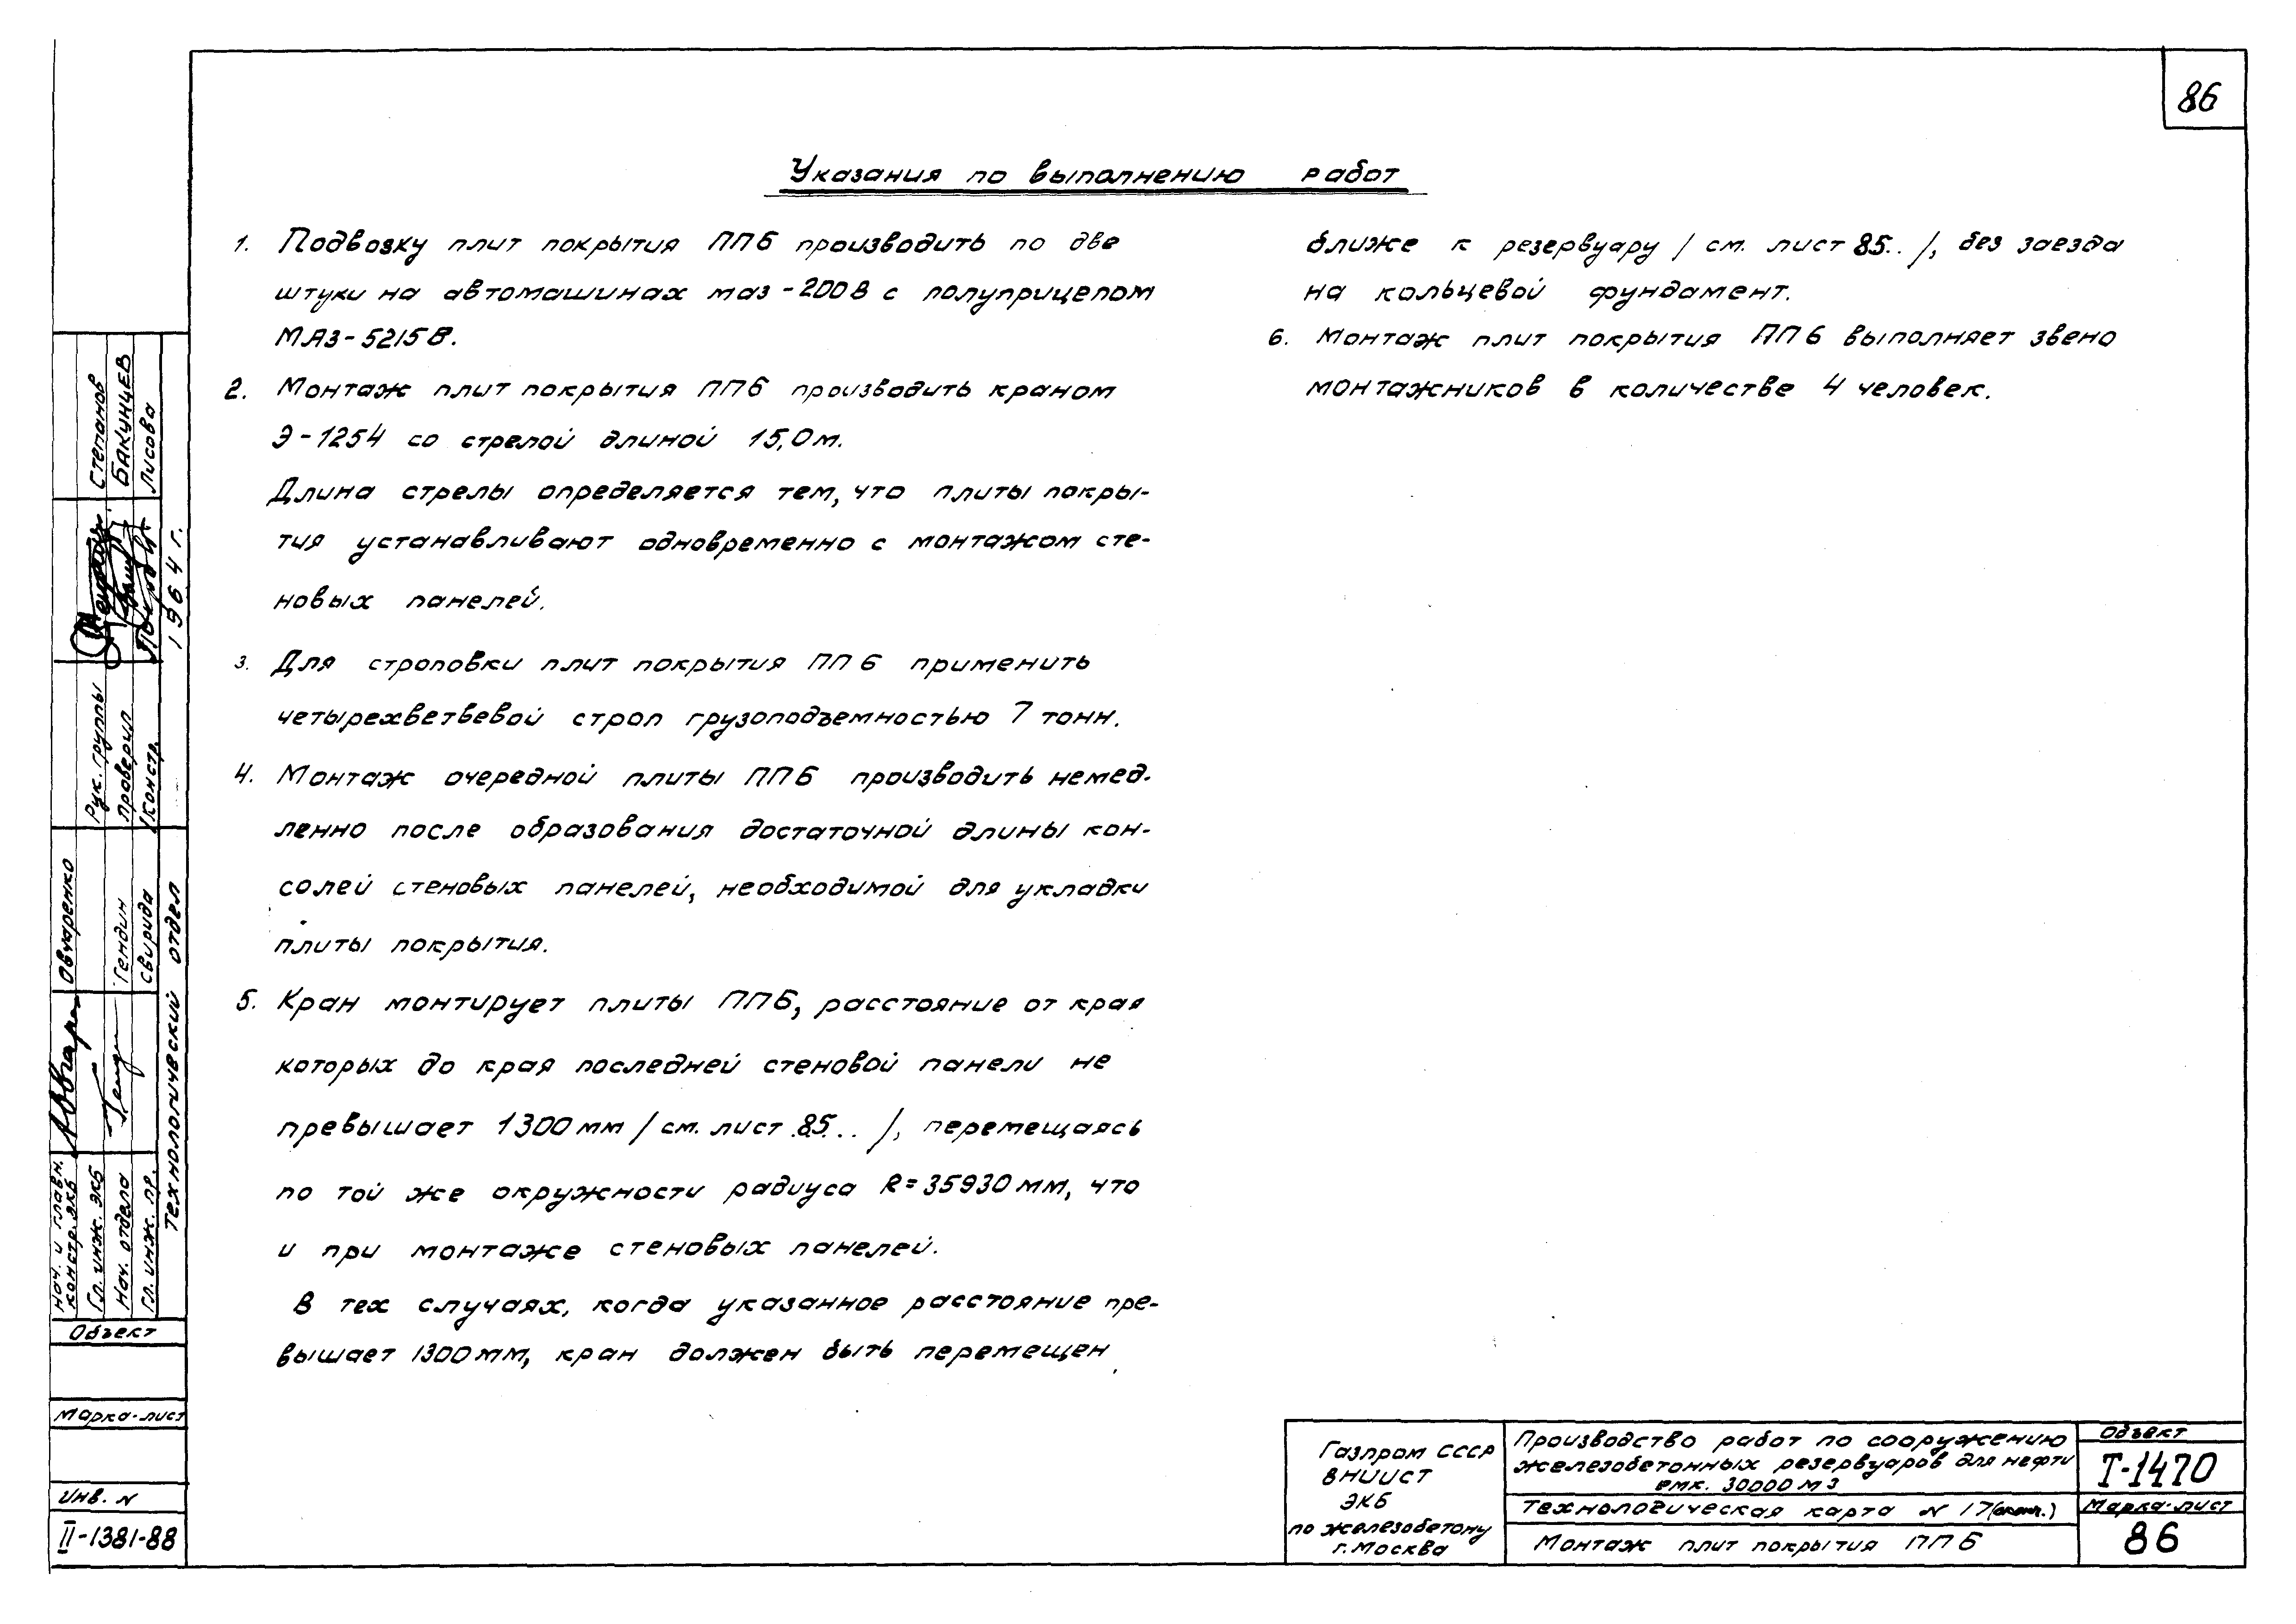 86
Указания по выполнению работ
1. Подвозку плит покрытия ПП6 производить по две
штуки на автомашинах маз-200В с полуприцепом
МАЗ-5215В.
2. Монтаж плит покрытия ПП6 производить краном
Э-1254 со стрелой длиной 15,0м.
Длина стрелы определяется тем, что плиты покры-
тия устанавливают одновременно с монтажом сте-
новых панелей.
3. Для строповки плит покрытия ПП6 применить
четырехветвевой строп грузоподъемностью 7 тонн.
4. Монтаж очередной плиты ПП6 производить немед-
ленно после образования достаточной длины кон-
солей стеновых панелей, необходимой для укладки
плиты покрытия.
5. Кран монтирует плиты ПП6, расстояние от края
которых до края последней стеновой панели не
превышает 1300мм /см. лист 85.. /, перемещаясь
по той же окружности радиуса R=35930мм, что
и при монтаже стеновых панелей.
В тех случаях, когда указанное расстояние пре-
вышает 1300мм, кран должен быть перемещен
ближе к резервуару /см. лист 85.. /, без заезда
на кольцевой фундамент.
6. Монтаж плит покрытия ПП6 выполняет звено
монтажников в количестве 4 человек.
Степанов
Бакунцев
Лисова
1964 г.
Рук. группы
Проверил
Констр.
Овчаренко
Гендин
Свирида
Технологический отдел
Нач. и главн.
констр. ЭКБ
Гл. инж. ЭКБ
Нач. отдела
Гл. инж. пр.
Объект
Марка-лист
Инв. N
II-1381-88
Газпром СССР
ВНИИСТ
ЭКБ
по железобетону
г. Москва
Производство работ по сооружению
железобетонных резервуаров для нефти
емк. 30000 м3
Технологическая карта N 17
Монтаж плит покрытия ПП6
Объект
Т-1470
Марка-лист
86